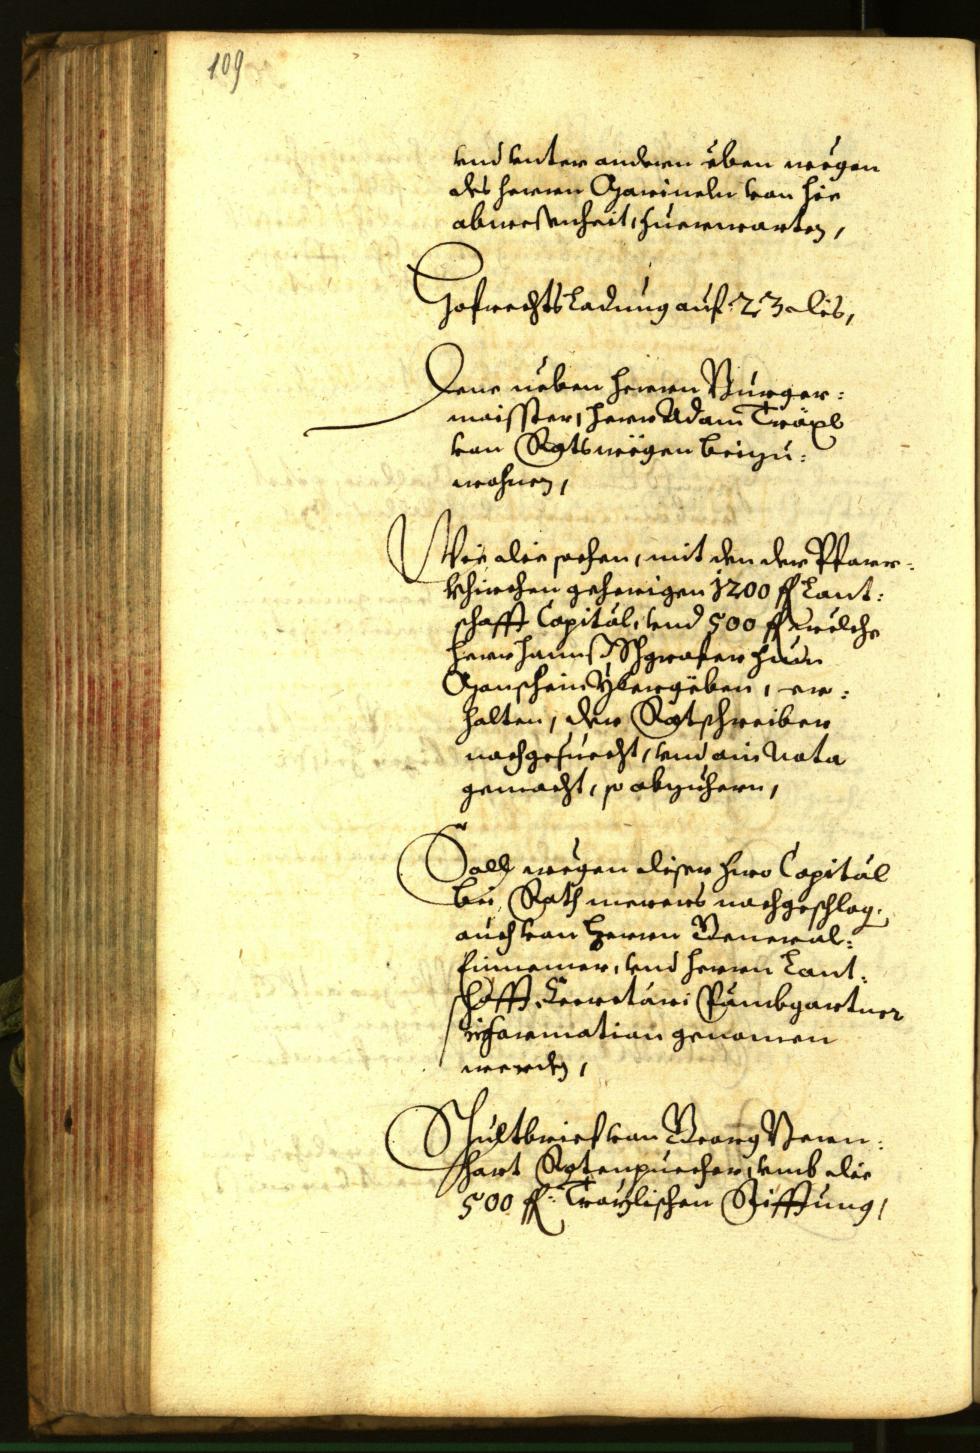 109
vnd vnter anderen eben wegen
des herrn von hie
abwesenheit, zuerwarten,
Hofrechts Ladung auf 23 dis,
Deme neben herrn Burger:
maisster, herr Adam Träxl
von Rats wegen beizu:
wohnen,
Wie die sachen, mit den der Pfarr:
khirchen gehörigen 1200 fl Lant:
schafft Capital, vnd 500 fl welche
herr Hannß zum
ybergeben, er:
halten, der Ratschreiber
nachgesuecht, vnd ain Nota
gemacht, so abzuhern,
Soll wegen diser zwo Capital
bei Rath merers nachgeschlag.
auch von herrn General:
Einnemer, vnd herrn Lant:
schafft Secretari Paumbgartner
information genomen
werden,
Schultbrief von Georg Bern:
hart Rotenpuecher, vmb die
500 fl: Stifftung,